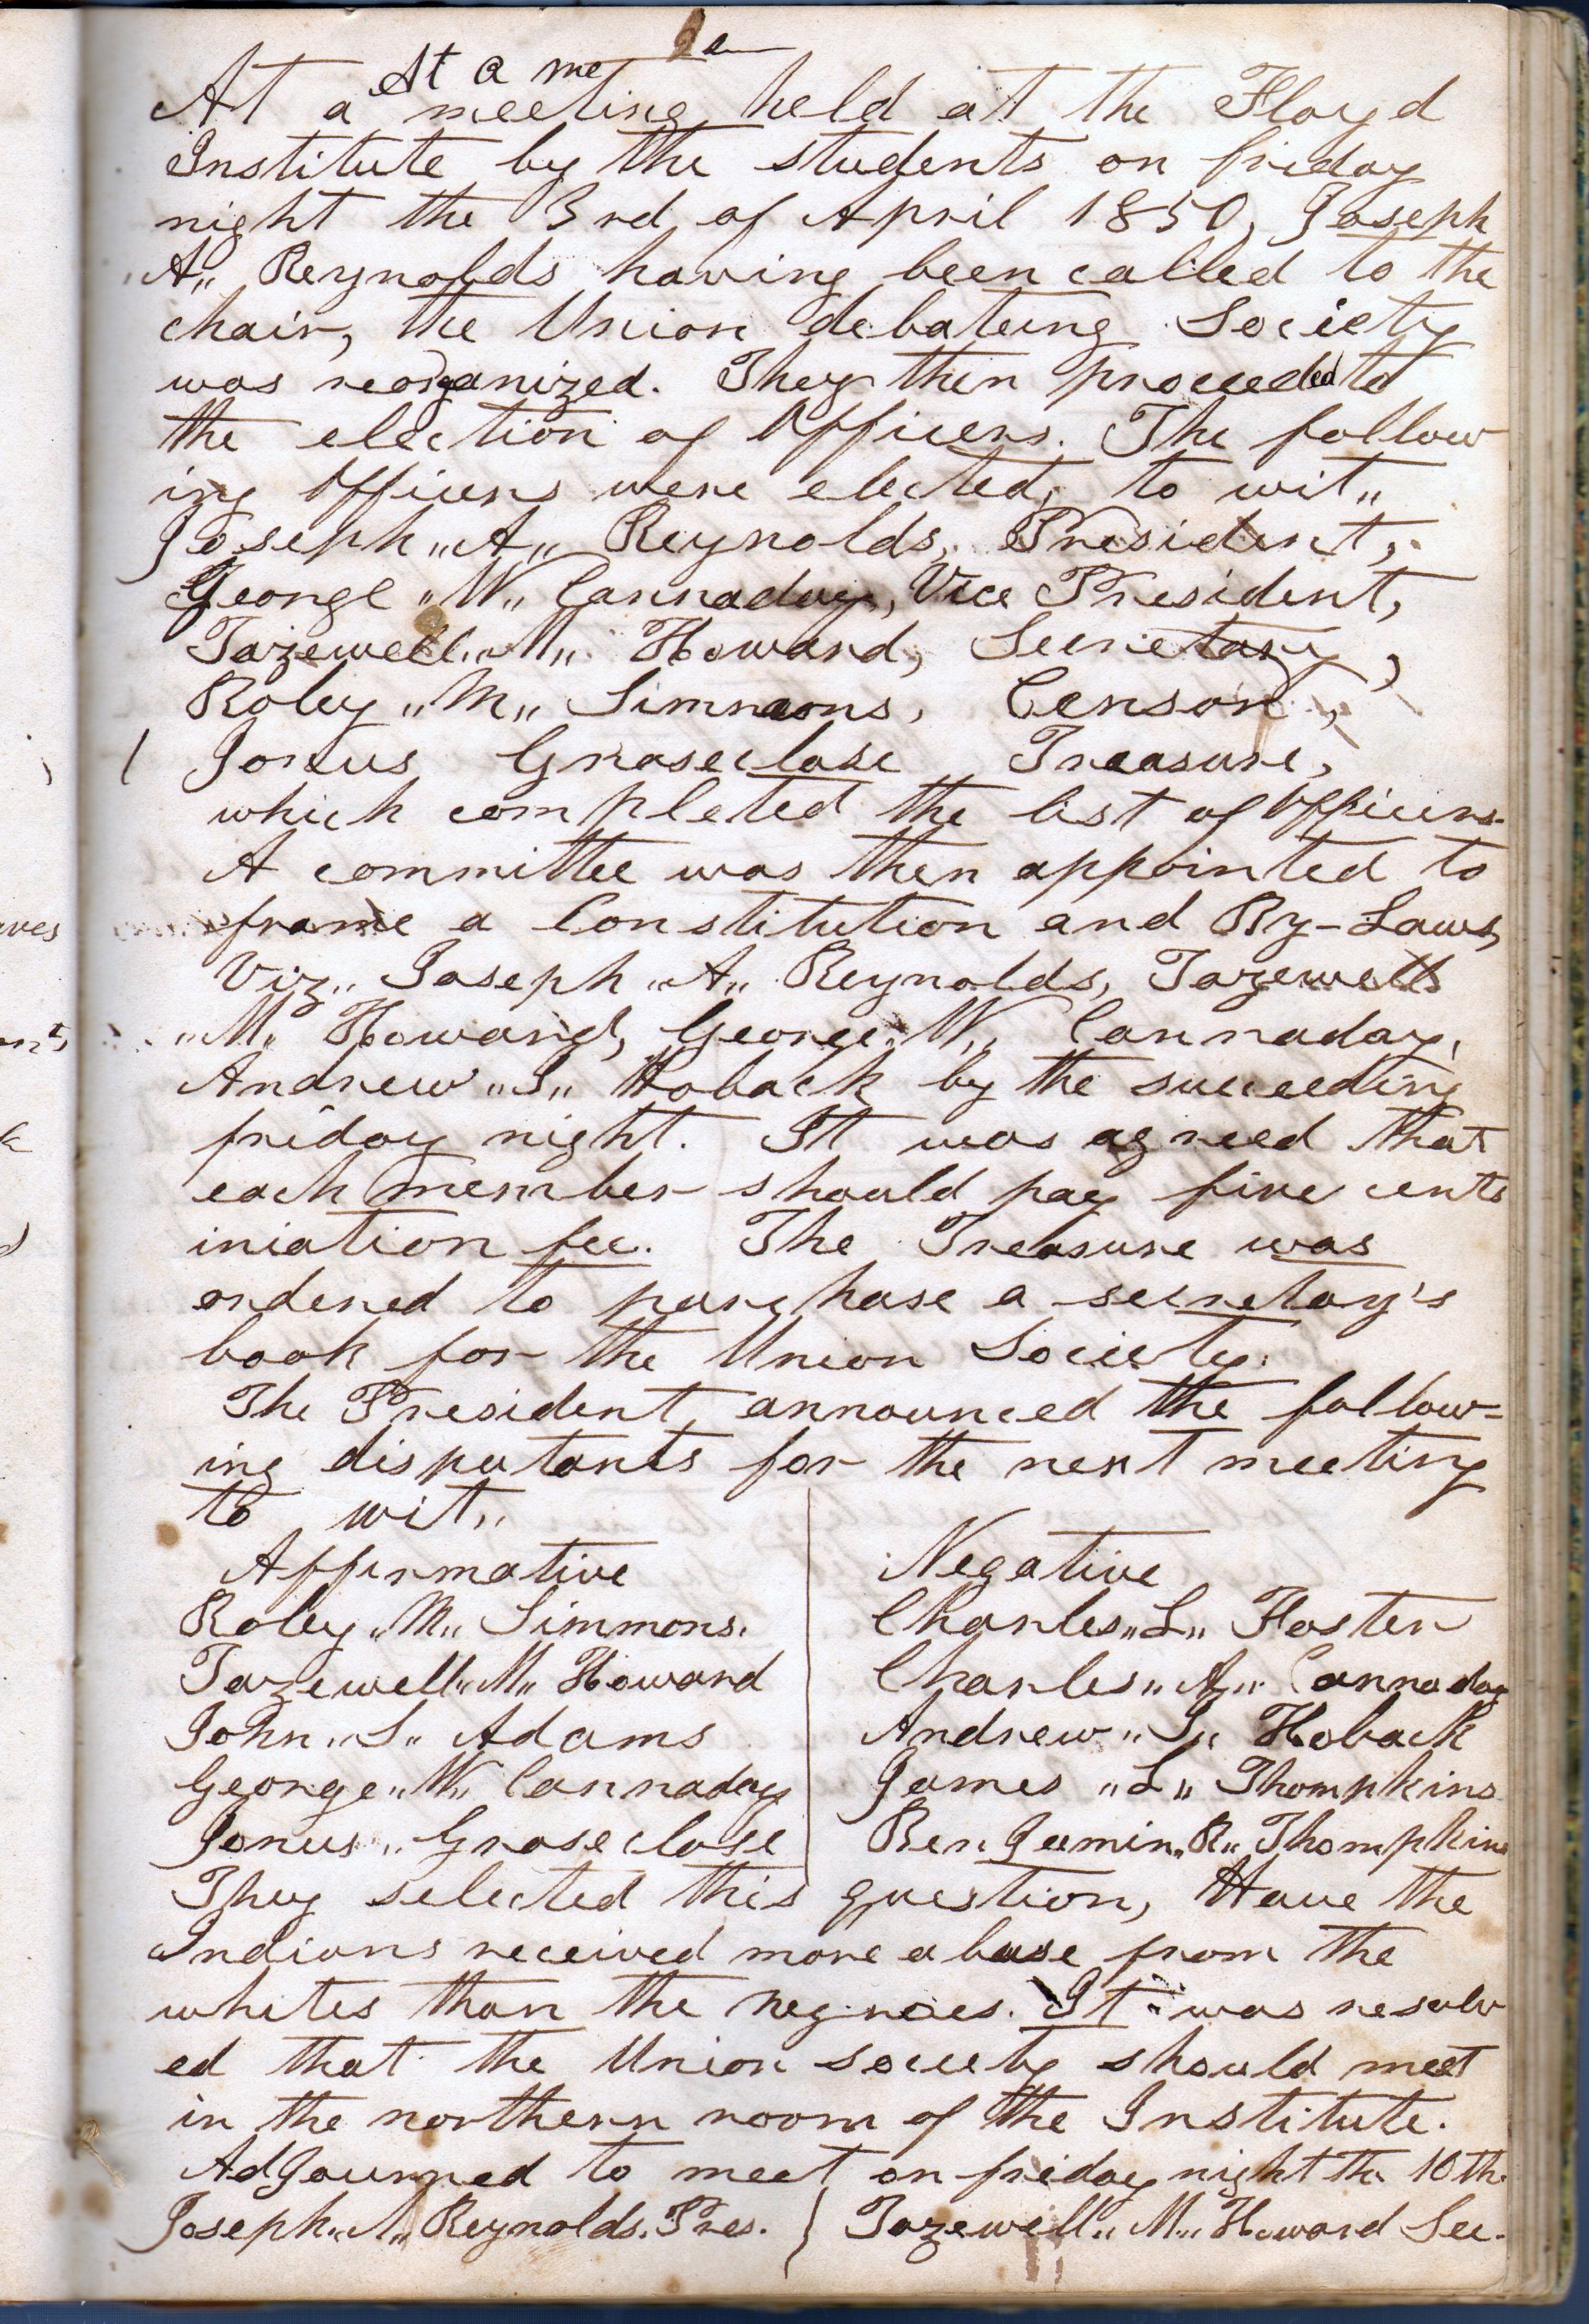 At a me
At a meeting held at the Floyd
Institute by the students on friday
night the 3rd of April 1850, Joseph
"A" Reynolds having been called to the
chair, the Union debateing Society
was reorganized. They then proceeded to
the election of Officers. The follow
ing Officers were elected, to wit,,
Joseph "A" Reynolds, President,
George "W" Cannaday, Vice President,
Tazewell "M" Howard, Secretary,
Roley "M" Simmons, Censor,
Jonus Groseclose Treasure,
which completed the list of Officers.
A committee was then appointed to
frame a Constitution and By-Laws,
Viz,, Joseph "A" Reynolds, Tazewell
"M" Howard, George "W" Cannaday,
Andrew "S" Hoback by the succeeding
friday night. It was agreed that
each member should pay five cents
iniation fee. The Treasure was
ordered to purchase a secretay's
book for the Union Society.
The President announced the follow-
ing disputants for the next meeting
to wit,,
Affirmative
Roley "M" Simmons.
Tazewell "M" Howard
John "S" Adams
George "W" Cannaday
Jonus ,, Groseclose
Negative
Charles "L" Foster
Charles "A" Cannaday
Andrew "S" Hoback
James "L" Thompkins
Benjeemin "R" Thompkins
They selected this question, Have the
Indians received more abuse from the
whites than the negroes. It was resolv
ed that the Union society should meet
in the northern room of the Institute.
Adjourned to meet on friday night the 10th.
Joseph "A" Reynolds. Pres. } Tazewell "M" Howard Sec.